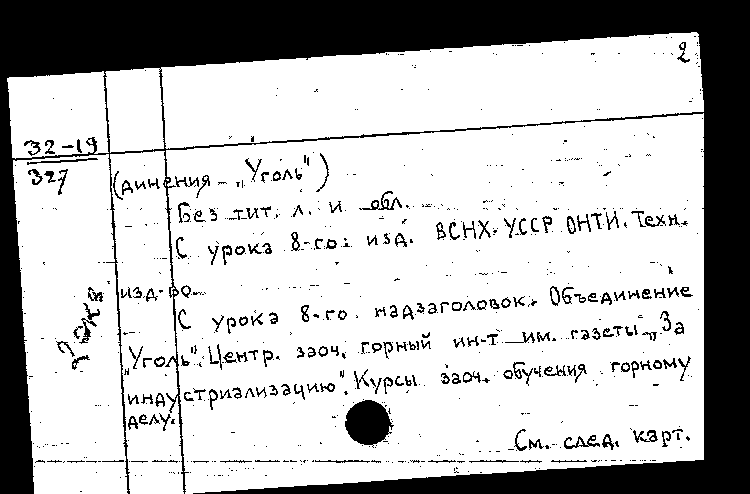 2
32-19
327
(динения „Уголь")
Без тит. л. и обл.
С урока 8-го: изд. ВСНХ. УССР ОНТИ. Техн.
изд-во.
С урока 8-го. надзаголовок: Объединение
„Уголь". Центр. заоч. горный ин-т им. газеты „За
индустриализацию". Курсы заоч. обучения горному
делу.
См. след. карт.
2 экз